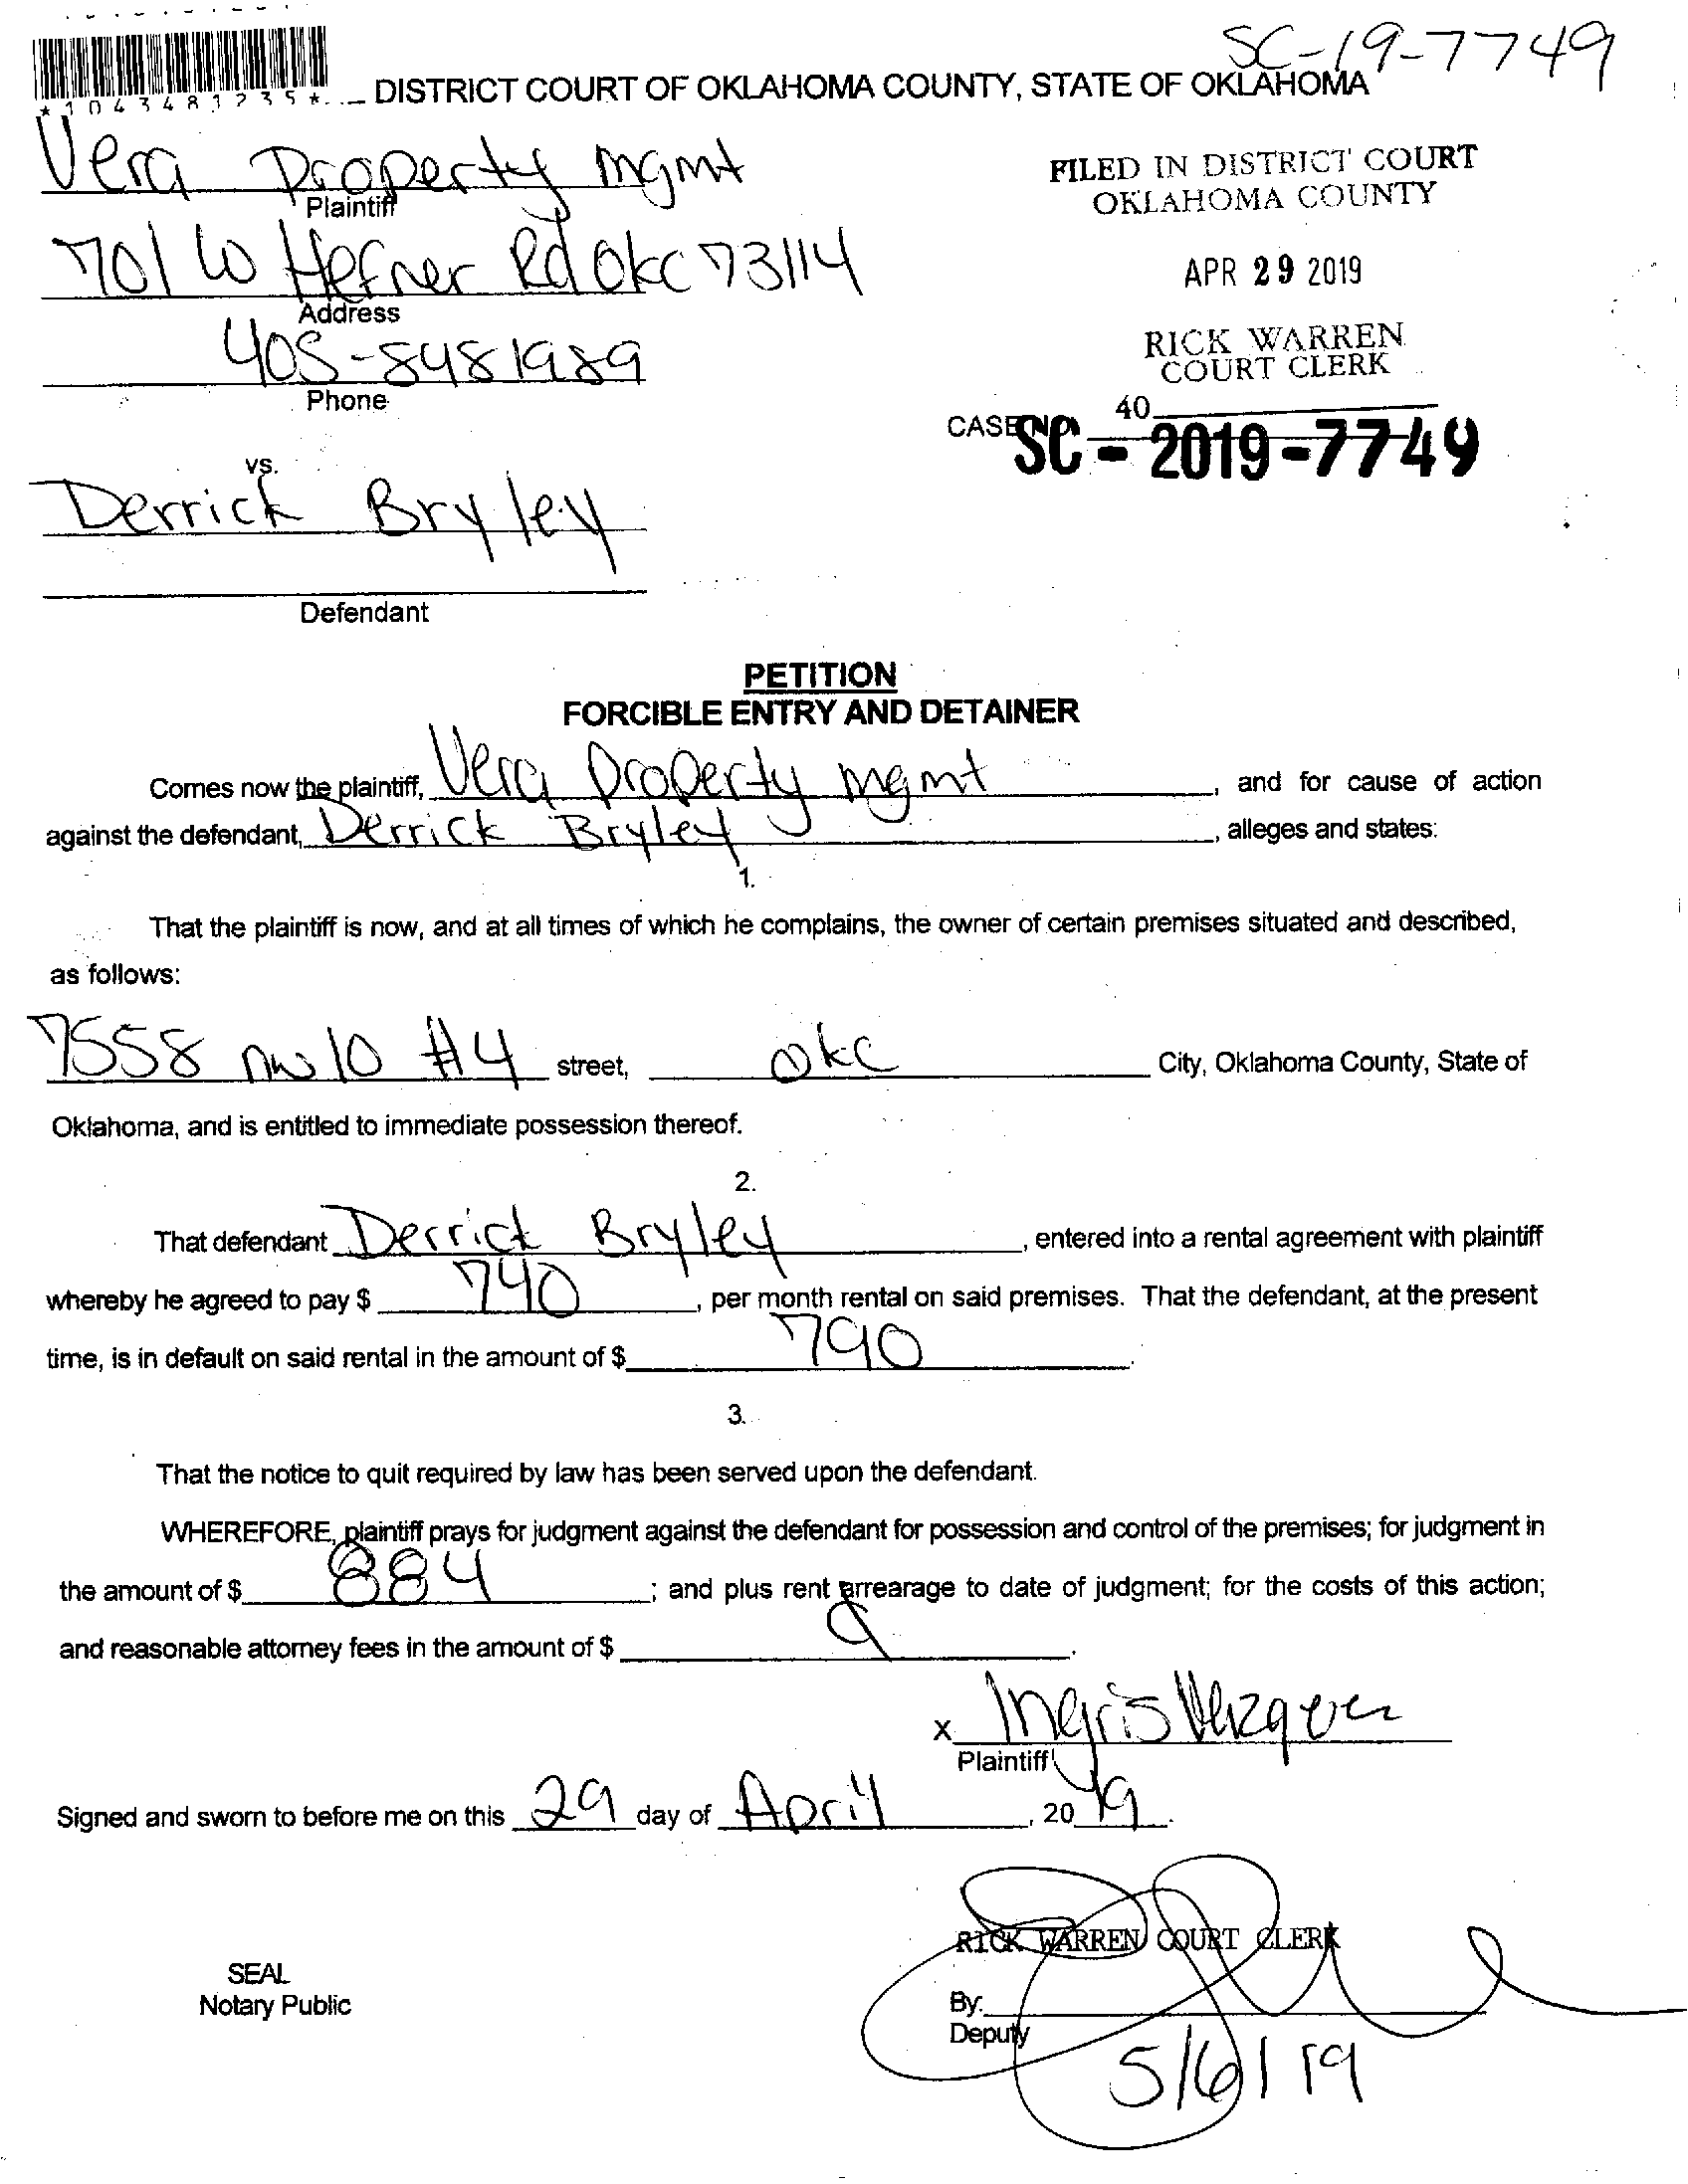 SC-19-7749
*1043481235*
DISTRICT COURT OF OKLAHOMA COUNTY, STATE OF OKLAHOMA
Vera Property mgmt
Plaintiff
FILED IN DISTRICT COURT
OKLAHOMA COUNTY
701 W Hefner Rd Okc 73114
Address
APR 29 2019
405-8481989
Phone
RICK WARREN
COURT CLERK
40
CASE NO.
SC - 2019-7749
vs.
Derrick Bryley
Defendant
PETITION
FORCIBLE ENTRY AND DETAINER
Comes now the plaintiff, Vera Property mgmt, and for cause of action
against the defendant, Derrick Bryley, alleges and states:
1.
That the plaintiff is now, and at all times of which he complains, the owner of certain premises situated and described,
as follows:
7558 nw 10 #4 street, Okc City, Oklahoma County, State of
Oklahoma, and is entitled to immediate possession thereof.
2.
That defendant Derrick Bryley, entered into a rental agreement with plaintiff
whereby he agreed to pay $ 740, per month rental on said premises. That the defendant, at the present
time, is in default on said rental in the amount of $ 790.
3.
That the notice to quit required by law has been served upon the defendant.
WHEREFORE, plaintiff prays for judgment against the defendant for possession and control of the premises; for judgment in
the amount of $ 884; and plus rent arrearage to date of judgment; for the costs of this action;
and reasonable attorney fees in the amount of $ .
x Ingris
Plaintiff
Signed and sworn to before me on this 29 day of April, 2019.
RICK WARREN COURT CLERK
SEAL
Notary Public
By:
Deputy
5/6/19